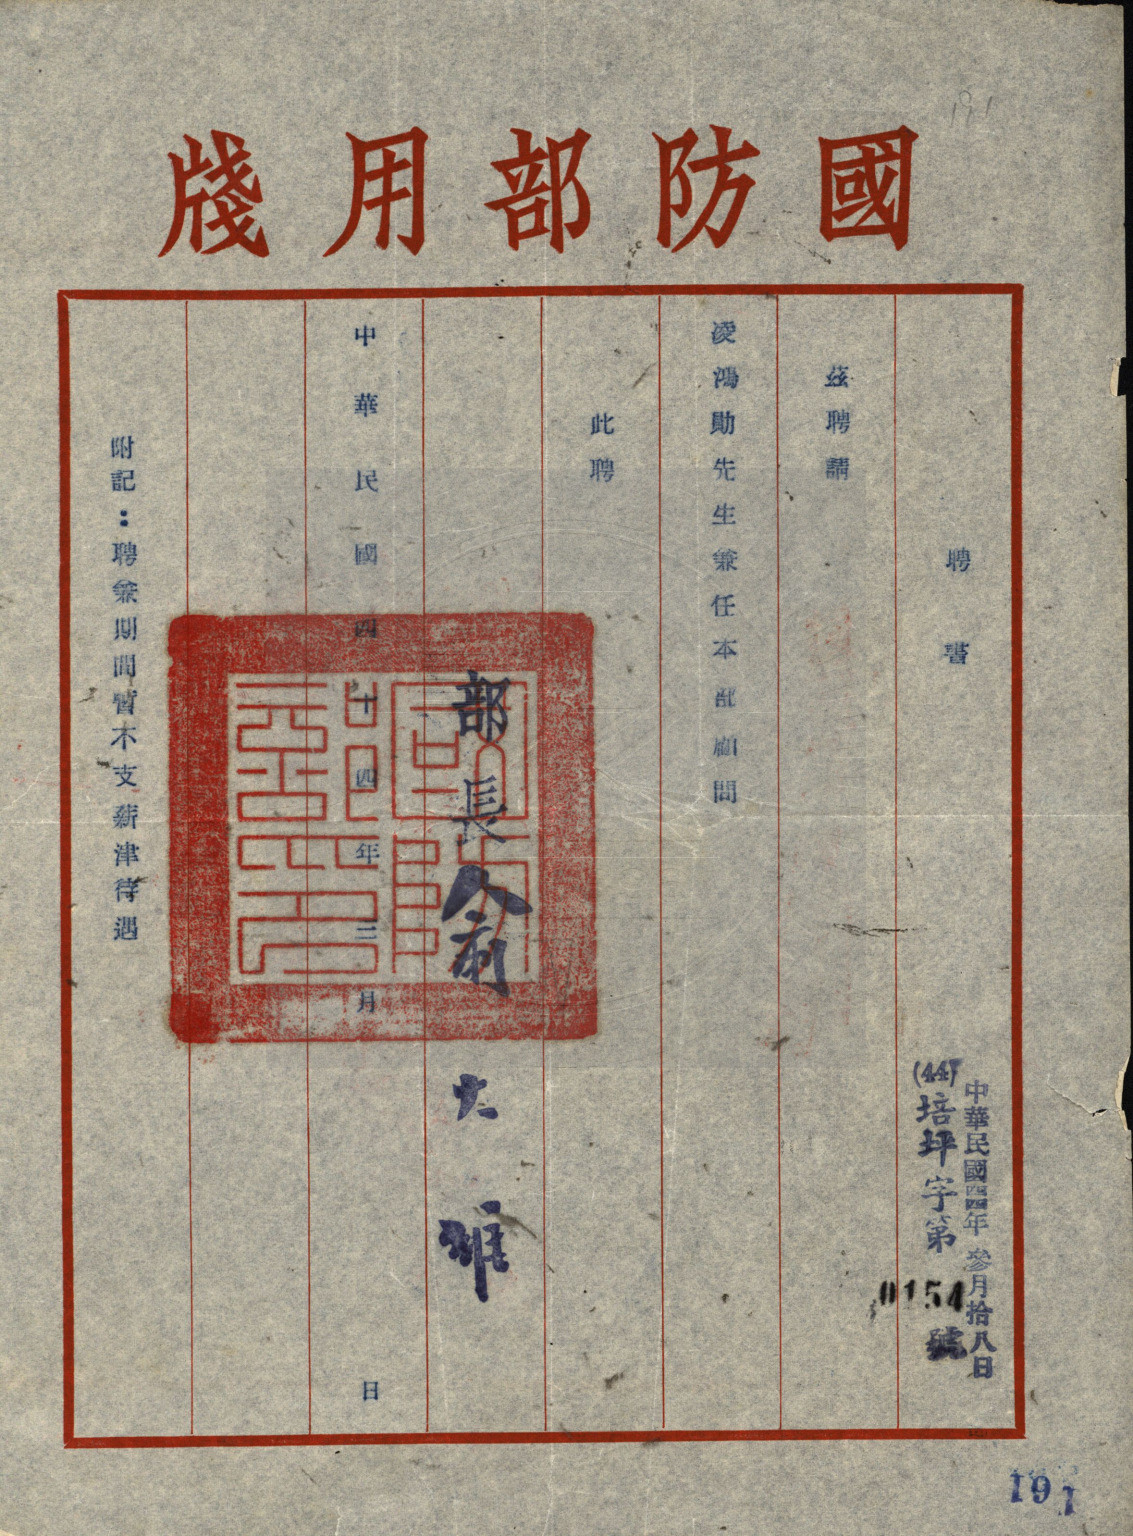 國防部用牋
聘書
中華民國四四年參月拾八日
(44)培坪字第0154號
茲聘請
凌鴻勛先生兼任本部顧問
此聘
部長俞大維
中華民國四十四年三月 日
附記：聘兼期間暫不支薪津待遇
國防部印
191
191